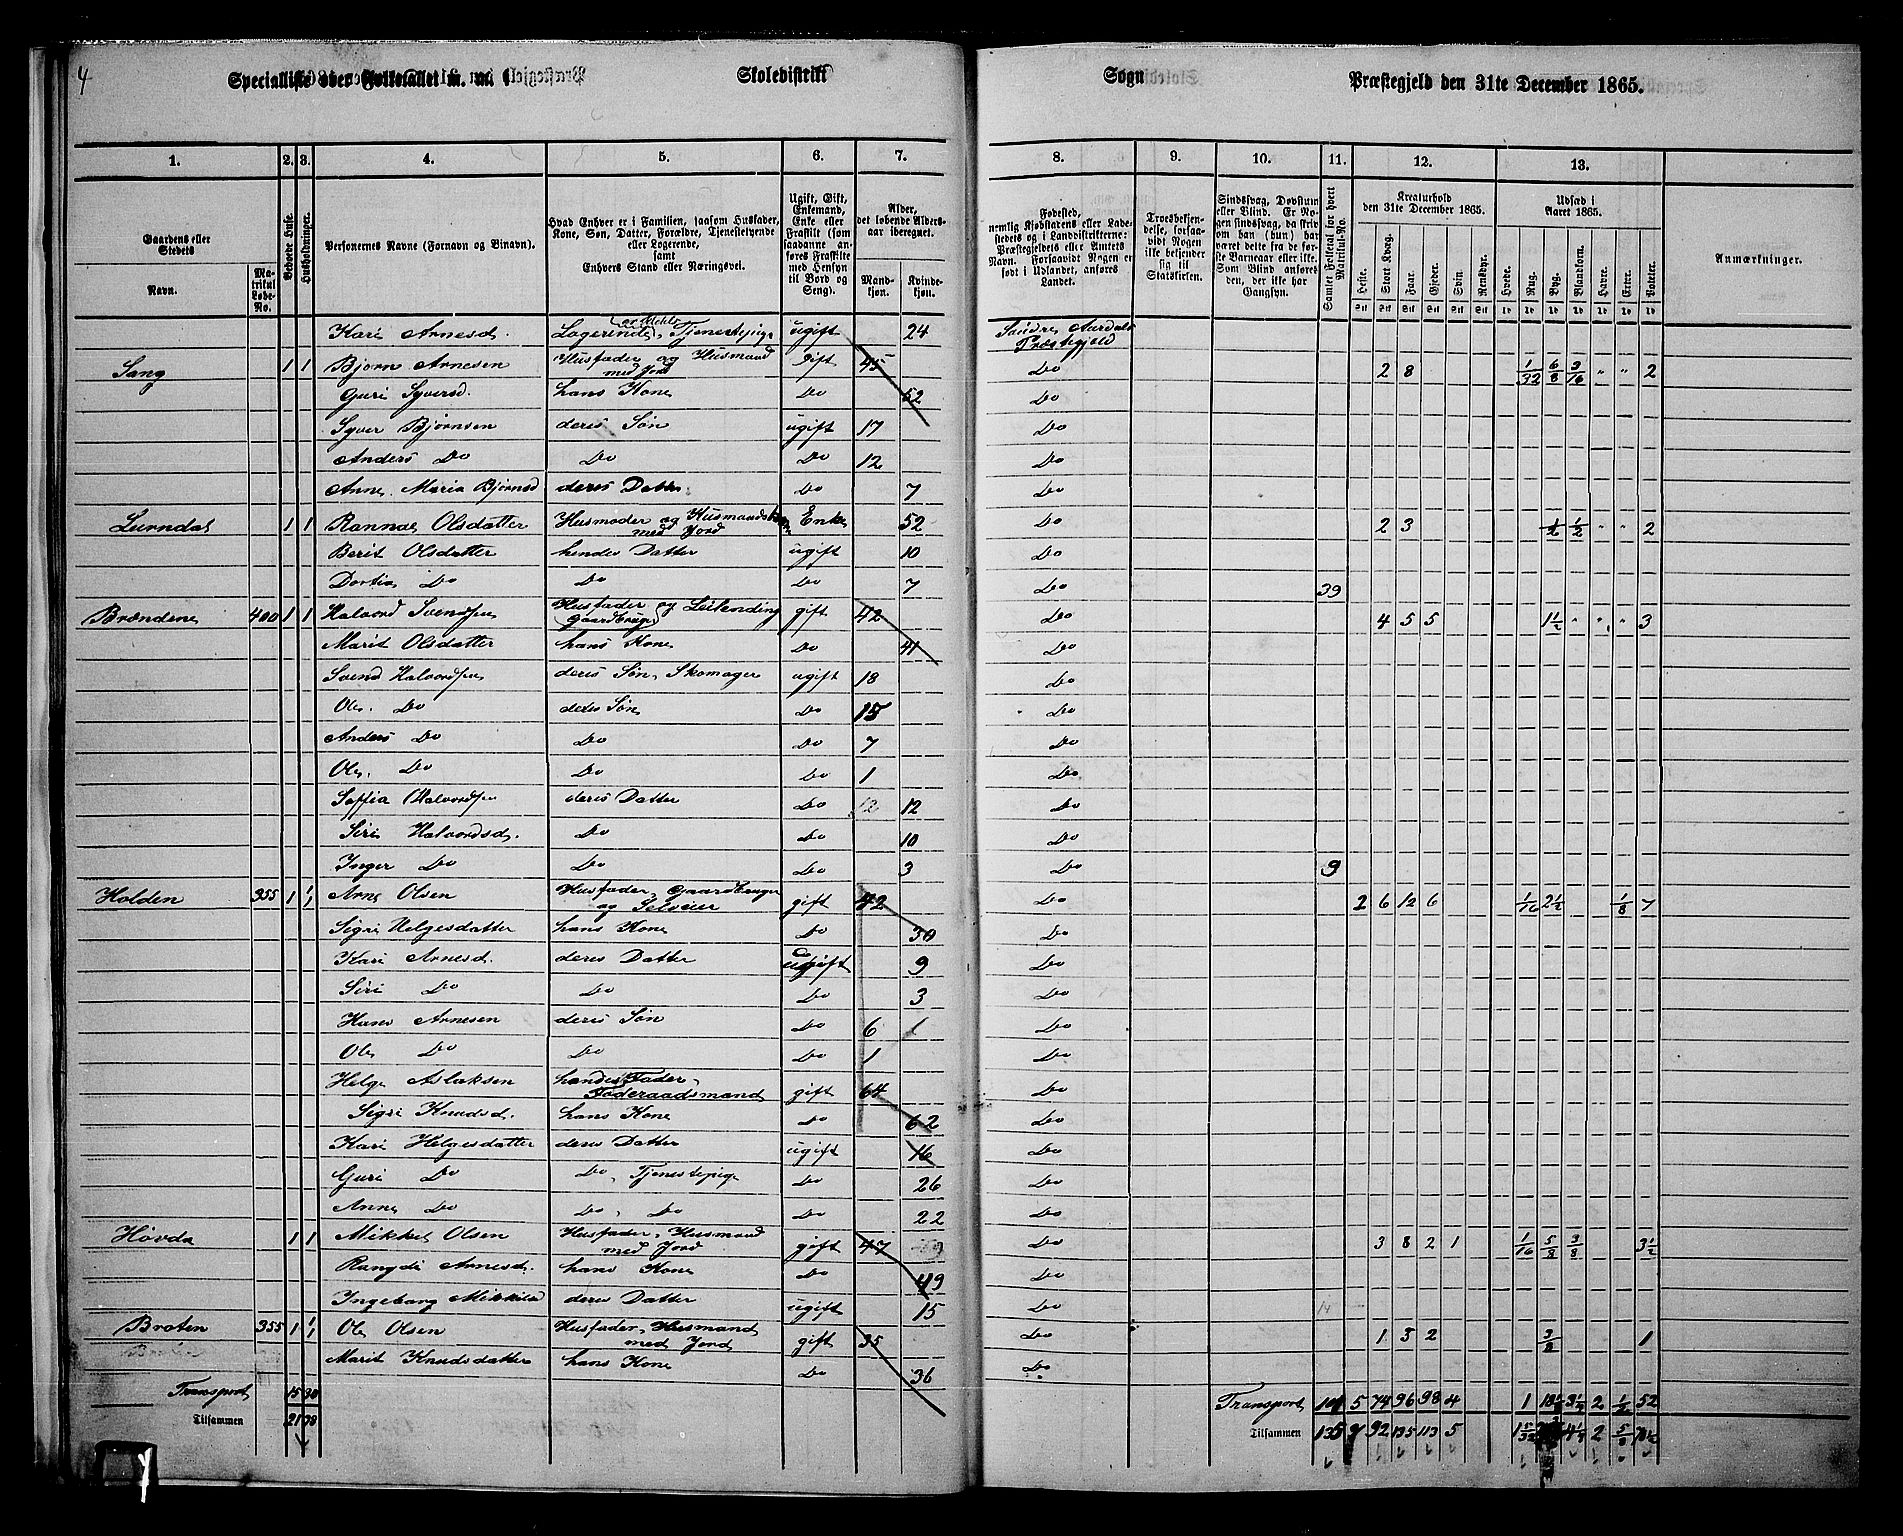 4
Specialliste over Folketallet m. m. i
Skoledistrikt
Sogn
Præstegjeld den 31te December 1865.
1. 2. 3. 4. 5. 6. 7. 8. 9. 10. 11. 12. 13.
Gaardens eller Stedets Navn.
Matrikul Løbe-No.
Beboede Huse.
Husholdninger.
Personernes Navne (Fornavn og Binavn).
Hvad Enhver er i Familien, saasom Husfader, Kone, Søn, Datter, Forældre, Tjenestetyende eller Logerende, samt Enhvers Stand eller Næringsvei.
Ugift, Gift, Enkemand, Enke eller Fraskilt (som saadanne anføres Fraskilte med Hensyn til Bord og Seng).
Alder, det løbende Aldersaar iberegnet.
Mandkjøn. Kvindekjøn.
Fødested, nemlig Kjøbstadens eller Ladestedets og i Landdistrikterne: Præstegjeldets eller Amtets Navn. Forsaavidt Nogen er født i Udlandet, anføres Landet.
Troesbekjendelse, forsaavidt Nogen ikke bekjender sig til Statskirken.
Sindssvag, Døvstum eller Blind. Er Nogen sindssvag, da skrives om han (hun) har været dette fra de første Barneaar eller ikke. Som Blind anføres den, der ikke har Gangsyn.
Samlet Folketal for hvert Matrikul-No.
Kreaturhold den 31te December 1865.
Heste. Stort Kvæg. Faar. Gjeder. Svin. Rensdyr.
Udsæd i Aaret 1865.
Hvede. Rug. Byg. Blandkorn. Havre. Erter. Poteter.
Anmærkninger.
Kari Arnesd. Logerende, Tjenestepige ugift 24 Søndre Aurdals Præstegjeld
Sang 1 1 Bjørn Arnesen Husfader og Husmand med Jord gift 45 Do 2 8 1/32 6/8 3/16 " " 2
Guri Syversd. hans Kone Do 52 Do
Syver Bjørnsen deres Søn ugift 17 Do
Anders Do Do Do 12 Do
Anne Maria Bjørnsd deres Datter Do 7 Do
Lurndal 1 1 Rannei Olsdatter Husmoder og med Jord Enke 52 Do 2 3 1/2 1/2 " " 2
Berit Olsdatter hendes Datter ugift 10 Do
Dortia Do Do Do 7 Do 39
Brændene 400 1 1 Halvord Svendsen Husfader og Leilending Gaardbruger gift 42 Do 4 5 5 1 1/2 " " " 3
Marit Olsdatter hans Kone Do 41 Do
Svend Halvordsen deres Søn, Skomager ugift 18 Do
Ole Do deres Søn Do 15 Do
Anders Do Do Do 7 Do
Ole Do Do Do 1 Do
Soffia Halvordsen deres Datter Do 12 12 Do
Siri Halvordsd. Do Do 10 Do
Inger Do Do Do 3 Do 9
Holden 355 1 1/1 Arne Olsen Husfader, Gaardbruger og Selveier gift 42 Do 2 6 12 6 1/16 2 1/2 1/8 7
Sigri Helgesdatter hans Kone Do 30 Do
Kari Arnesd. deres Datter ugift 9 Do
Siri Do Do Do 3 Do
Hans Arnesen deres Søn Do 6 1 Do
Ole Do Do Do 1 Do
Helge Aslaksen Fader, Føderaadsmand gift 64 Do
Sigri Knudsd. hans Kone Do 62 Do
Kari Helgesdatter deres Datter ugift 16 Do
Guri Do Do, Tjenestepige Do 26 Do
Anne Do Do, Do Do 22 Do
Høvda 1 1 Mikkel Olsen Husfader, Husmand med Jord gift 47 Do 3 8 2 1 1/16 5/8 3/8 3 1/2
Rangdi Arnesd. hans Kone Do 49 Do
Ingeborg Mikkelsd deres Datter ugift 15 Do 14
Broten 355 1 1/1 Ole Olsen Husfader, Husmand med Jord gift 35 Do 1 3 2 3/8 1
Marit Knudsdatter hans Kone Do 36 Do
Transport 15 30 Transport 101 5 74 96 98 4 1 3 1/4 2 1/2 52
Tilsammen 21 38 Tilsammen 135 7 92 135 113 5 1 5/32 4 1/4 2 5/8 70 1/2